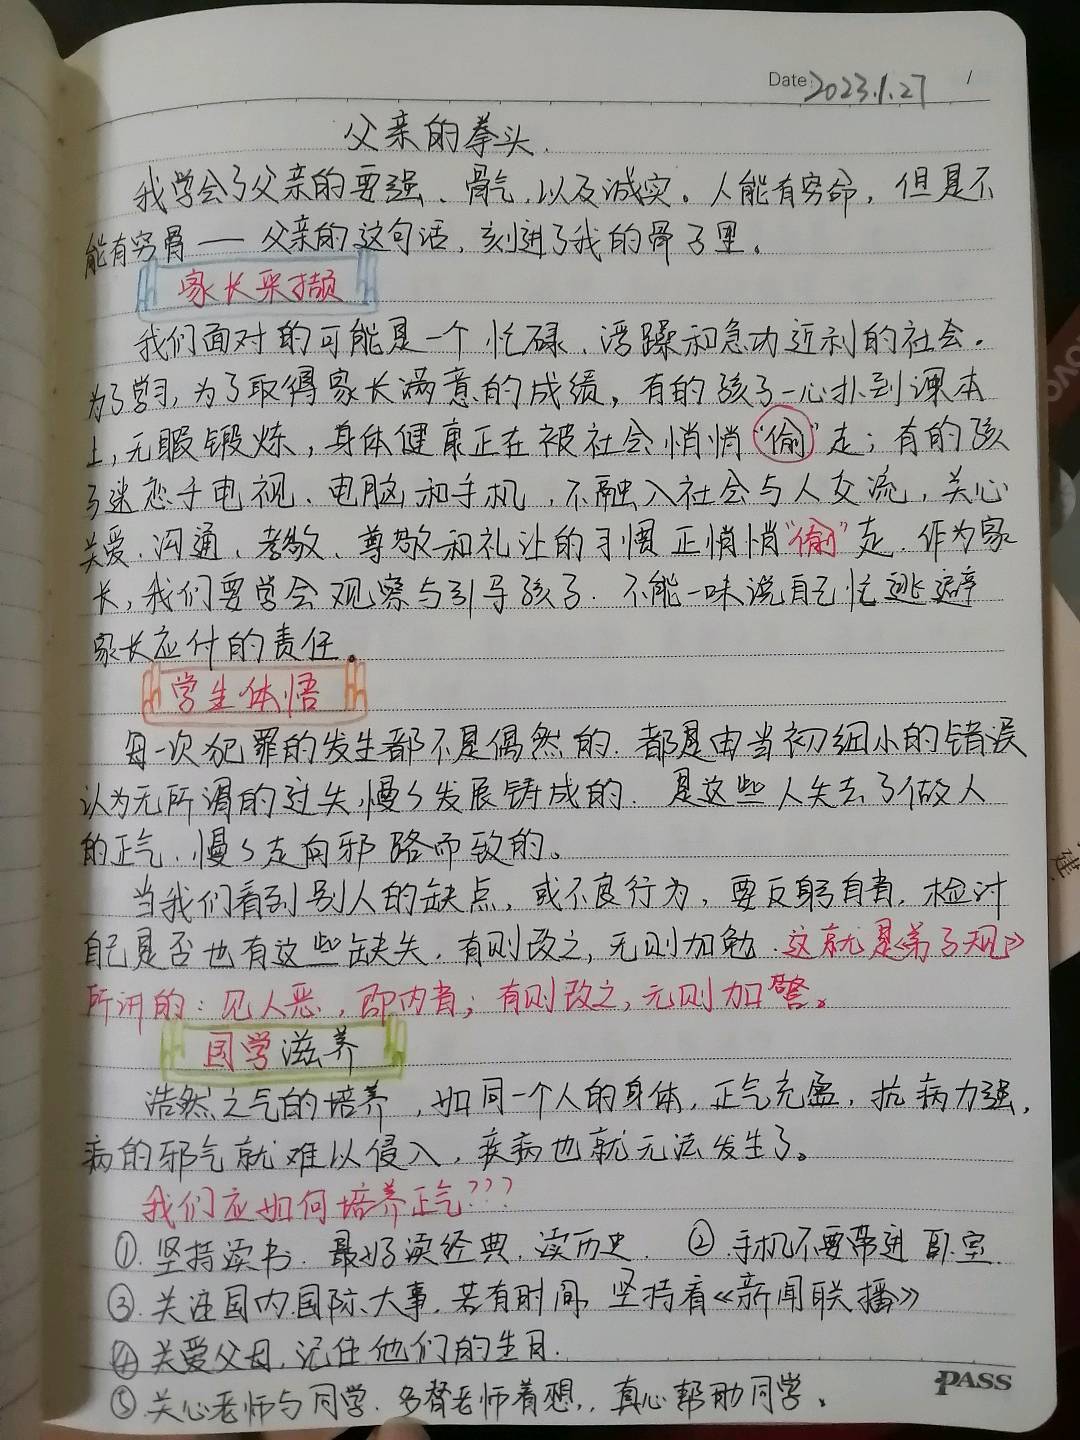 Date: 2023.1.27 1
父亲的拳头.
我学会了父亲的要强、骨气,以及诚实。人能有穷命,但是不
能有穷骨——父亲的这句话,刻进了我的骨子里。
家长采撷
我们面对的可能是一个忙碌、浮躁和急功近利的社会。
为了学习,为了取得家长满意的成绩,有的孩子一心扑到课本
上,无暇锻炼,身体健康正在被社会悄悄“偷”走;有的孩
子迷恋于电视、电脑和手机,不融入社会与人交流,关心
关爱、沟通、孝敬、尊敬和礼让的习惯正悄悄“偷”走.作为家
长,我们要学会观察与引导孩子.不能一味说自己忙逃避
家长应付的责任。
学生体悟
每一次犯罪的发生都不是偶然的.都是由当初细小的错误
认为无所谓的过失,慢々发展铸成的.是这些人失去了做人
的正气、慢々走向邪路而致的。
当我们看到别人的缺点,或不良行为,要反躬自省,检讨
自己是否也有这些缺失.有则改之,无则加勉.这就是《弟子规》
所讲的:见人恶,即内省;有则改之,无则加警。
国学滋养
浩然之气的培养,如同一个人的身体,正气充盈,抗病力强,
病的邪气就难以侵入,疾病也就无法发生了。
我们应如何培养正气???
①.坚持读书.最好读经典.读历史. ②.手机不要带进卧室.
③.关注国内、国际、大事.若有时间,坚持看《新闻联播》
④.关爱父母,记住他们的生日.
PASS
⑤.关心老师与同学.多替老师着想,真心帮助同学.
建